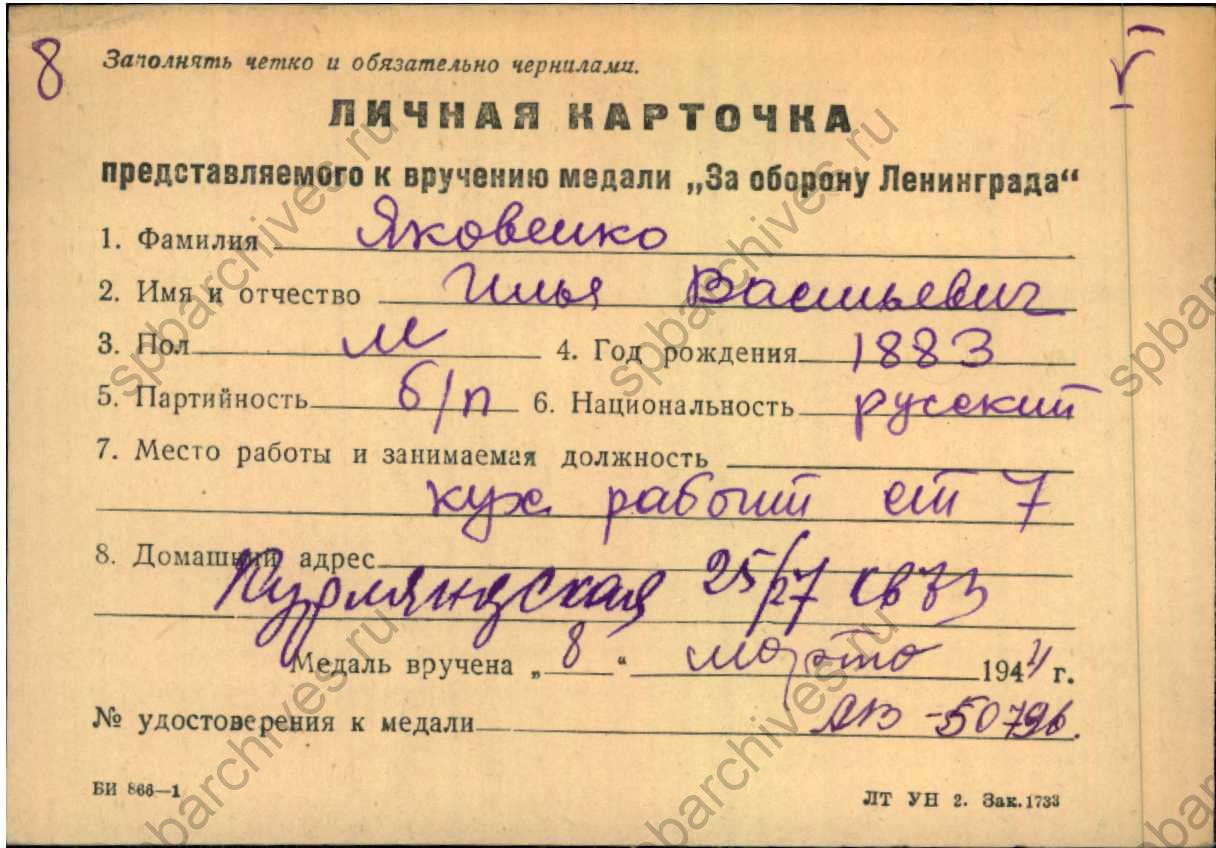 8
Заполнять четко и обязательно чернилами.
ЛИЧНАЯ КАРТОЧКА
представляемого к вручению медали „За оборону Ленинграда“
1. Фамилия Яковенко
2. Имя и отчество Илья Васильевич
3. Пол М 4. Год рождения 1883
5. Партийность б/п 6. Национальность русский
7. Место работы и занимаемая должность
кух. рабочий 7
8. Домашний адрес
Курляндская 25/27 кв
Медаль вручена „8“ марта 1944 г.
№ удостоверения к медали АВ-50796.
БИ 866—1
ЛТ УН 2. Зак. 1733
spbarchives.ru